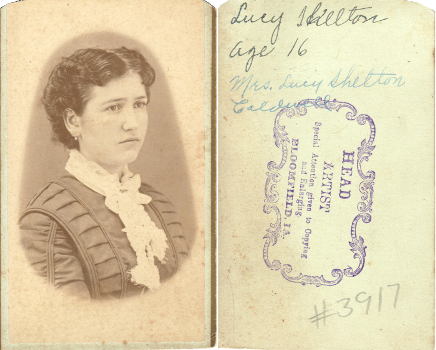 Lucy Shelton
Age 16
Mrs. Lucy Shelton
Caldwell
HEAD
ARTIST
Special Attention given to Copying
and Enlarging
BLOOMFIELD, IA.
#3917